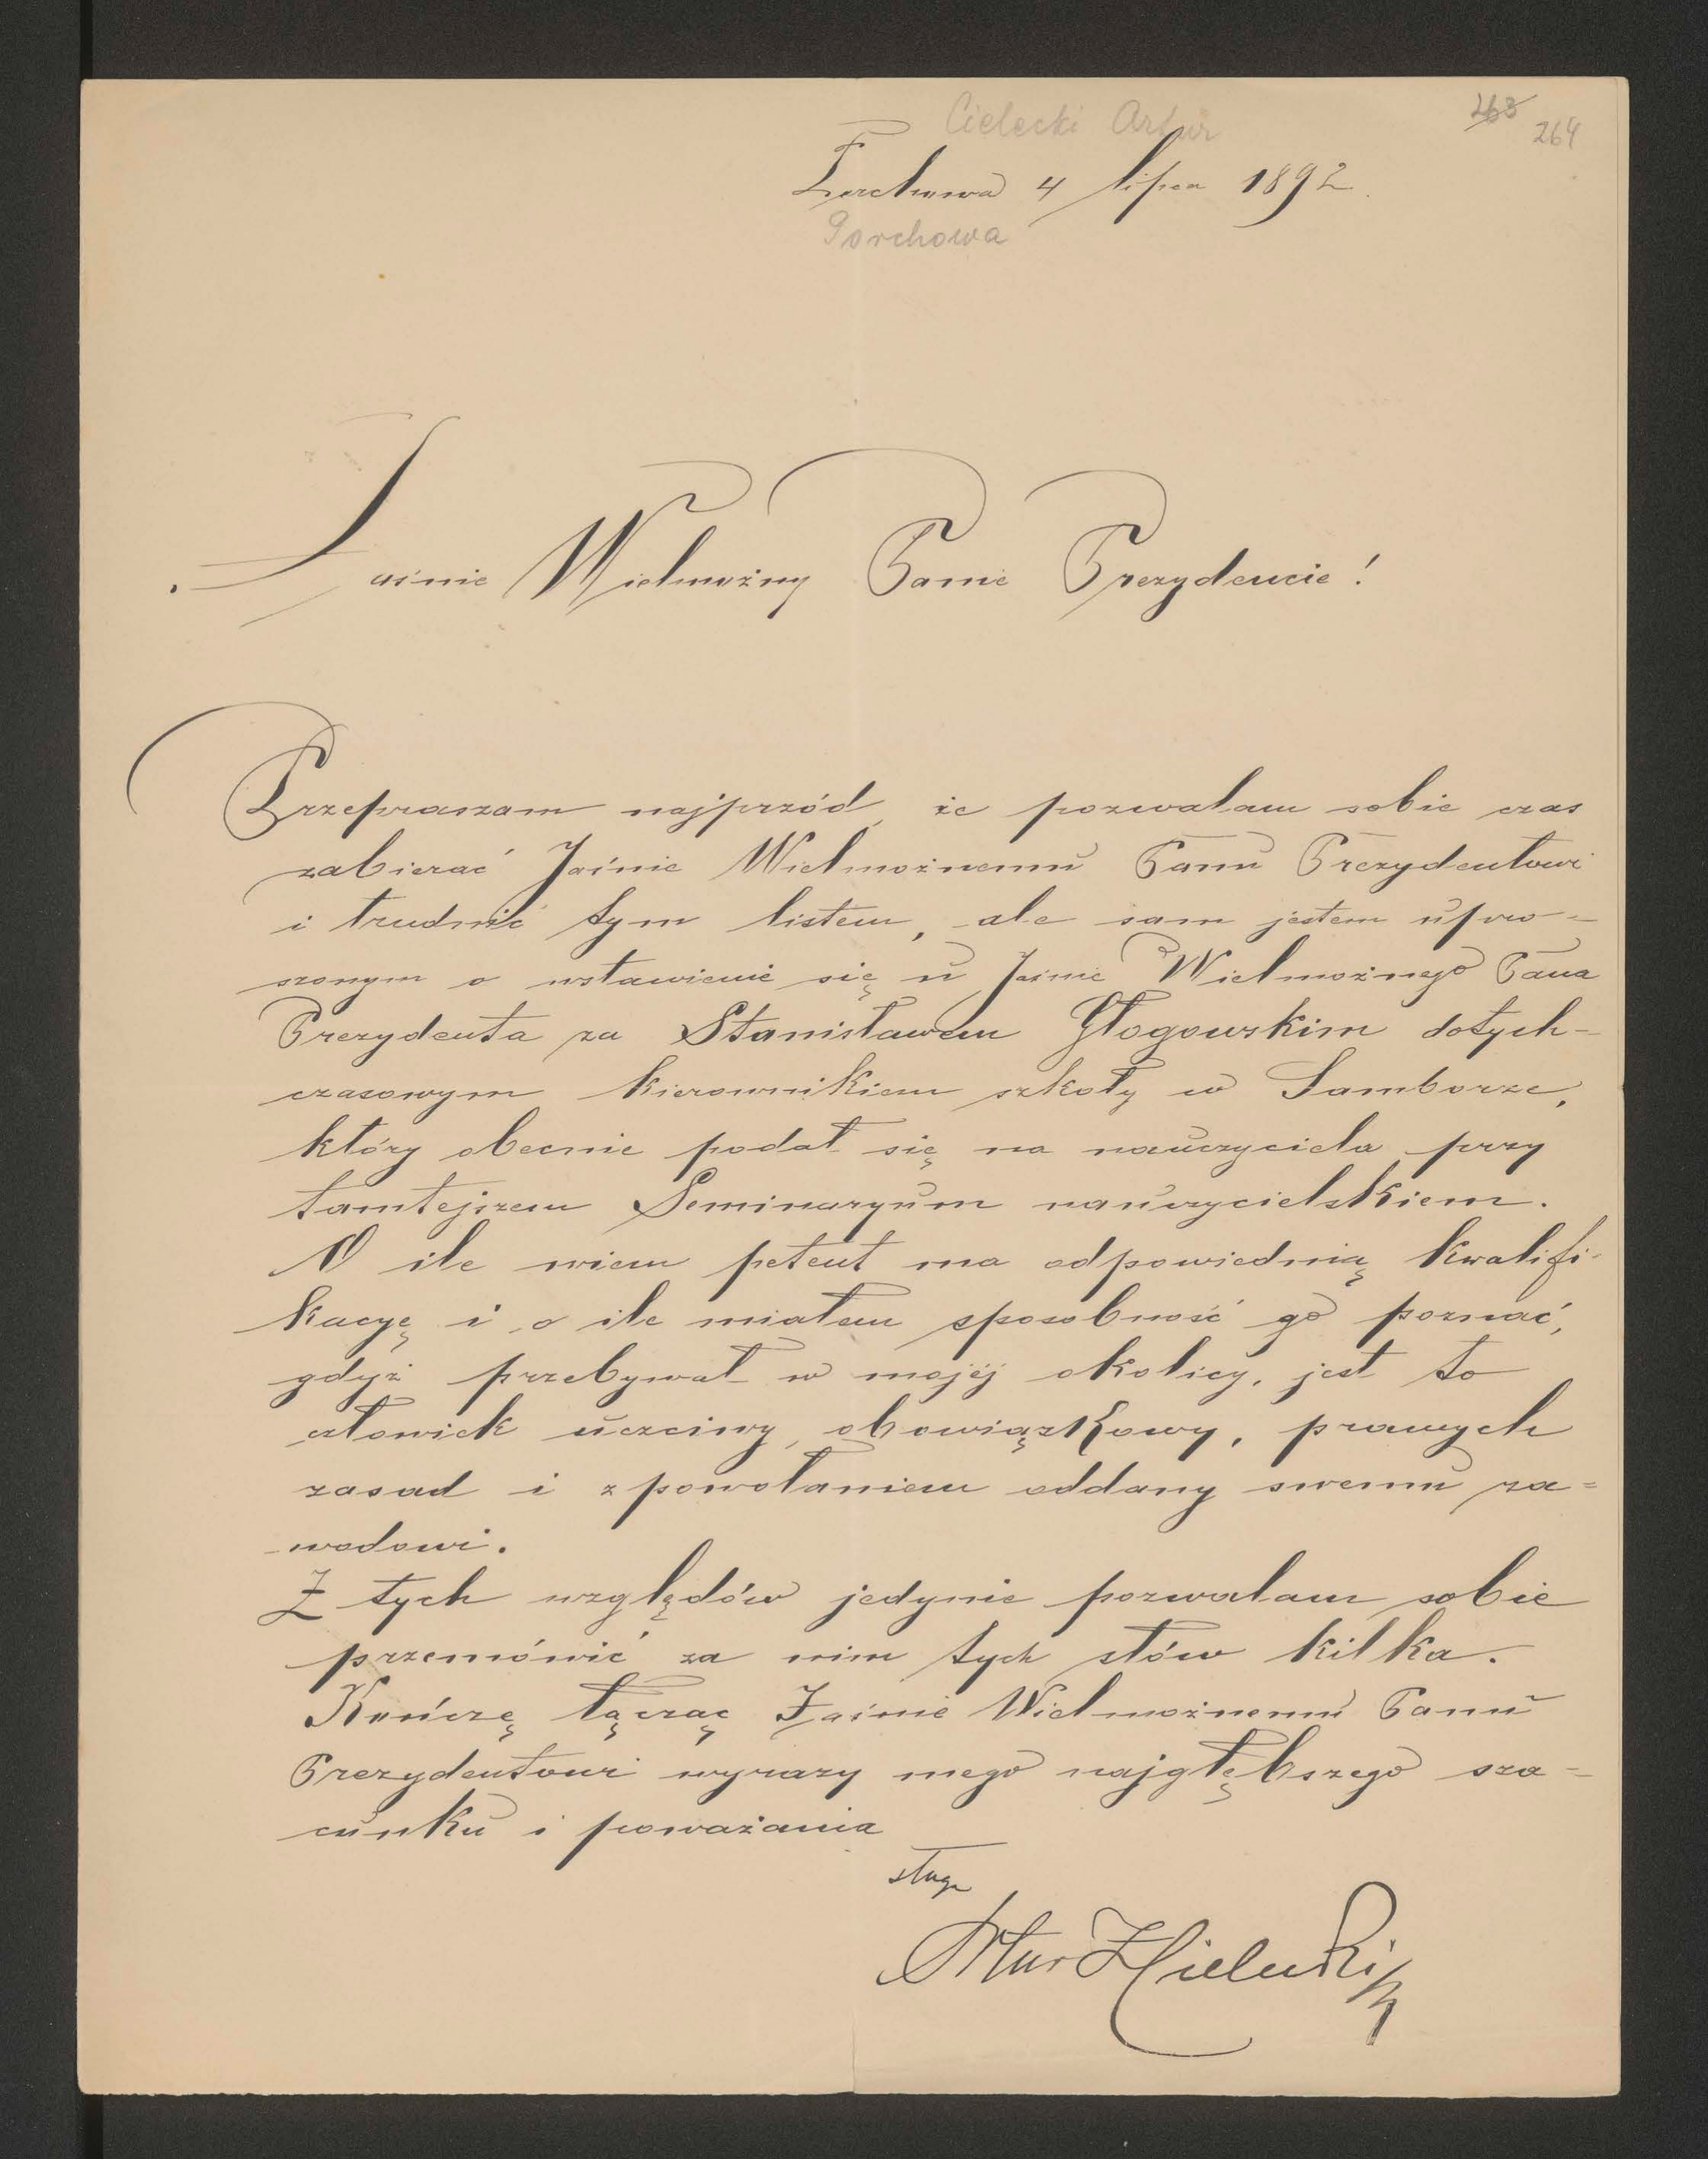 Cielecki Artur
263 264
Porchowa 4 lipca 1892
Porchowa
Jaśnie Wielmożny Panie Prezydencie!
Przepraszam najprzód, że pozwalam sobie czas
zabierać Jaśnie Wielmożnemu Panu Prezydentowi
i trudnić tym listem, ale sam jestem upro-
szonym o wstawienie się u Jaśnie Wielmożnego Pana
Prezydenta za Stanisławem Głogowskim dotych-
czasowym kierownikiem szkoły w Samborze,
który obecnie podał się na nauczyciela przy
tamtejszem Seminaryum nauczycielskiem.
O ile wiem petent ma odpowiednią kwalifi-
kacyę i o ile miałem sposobność go poznać,
gdyż przebywał w mojej okolicy, jest to
człowiek uczciwy, obowiązkowy, prawych
zasad i z powołaniem oddany swemu za-
wodowi.
Z tych względów jedynie pozwalam sobie
przemówić za nim tych słów kilka.
Kończę łącząc Jaśnie Wielmożnemu Panu
Prezydentowi wyrazy mego najgłębszego sza-
cunku i poważania
sługa
Artur Cielecki